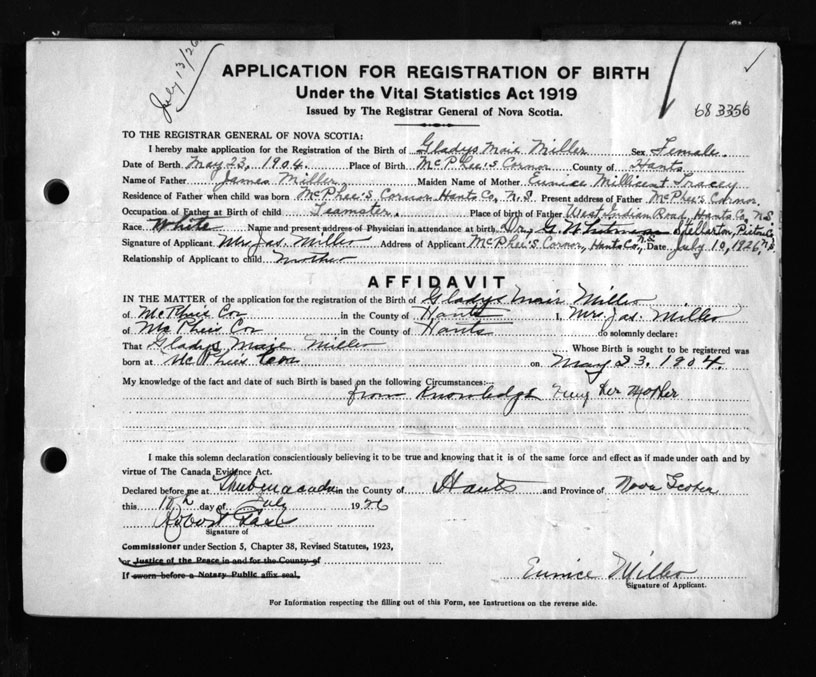 July 13/26
APPLICATION FOR REGISTRATION OF BIRTH
Under the Vital Statistics Act 1919
Issued by The Registrar General of Nova Scotia.
683356
TO THE REGISTRAR GENERAL OF NOVA SCOTIA:
I hereby make application for the Registration of the Birth of Gladys Mair Miller Sex Female.
Date of Berth May 23, 1904. Place of Birth McPhee's Cornor County of Hants
Name of Father James Miller Maiden Name of Mother Eunice Millicent Tracey
Residence of Father when child was born McPhee's Cornor Hants Co, N.S. Present address of Father McPhee's Cornor.
Occupation of Father at Birth of child Teamster. Place of birth of Father West Indian Road, Hants Co, N.S
Race. White Name and present address of Physician in attendance at birth. Dr. G. Whitman Stellarton, Pictou Co,
Signature of Applicant Mrs Jas. Miller Address of Applicant McPhee's Cornor, Hants Co, N.S Date July 10, 1926, N.S.
Relationship of Applicant to child mother
AFFIDAVIT
IN THE MATTER of the application for the registration of the Birth of Gladys Mair Miller
of McPhees Cor in the County of Hants I, Mrs. Jas. Miller
of McPhees Cor in the County of Hants do solemnly declare:
That Gladys Maie Miller Whose Birth is sought to be registered was
born at McPhees Cor on May 23. 1904.
My knowledge of the fact and date of such Birth is based on the following Circumstances:—
from Knowledge being her Mother
I make this solemn declaration conscientiously believing it to be true and knowing that it is of the same force and effect as if made under oath and by
virtue of The Canada Evidence Act.
Declared before me at Shubenacadie in the County of Hants and Province of Nova Scotia
this 10th day of July 1926
Robert
Signature of
Commissioner under Section 5, Chapter 38, Revised Statutes, 1923,
or Justice of the Peace in and for the County of
If sworn before a Notary Public affix seal.
Eunice Miller
Signature of Applicant.
For Information respecting the filling out of this Form, see Instructions on the reverse side.